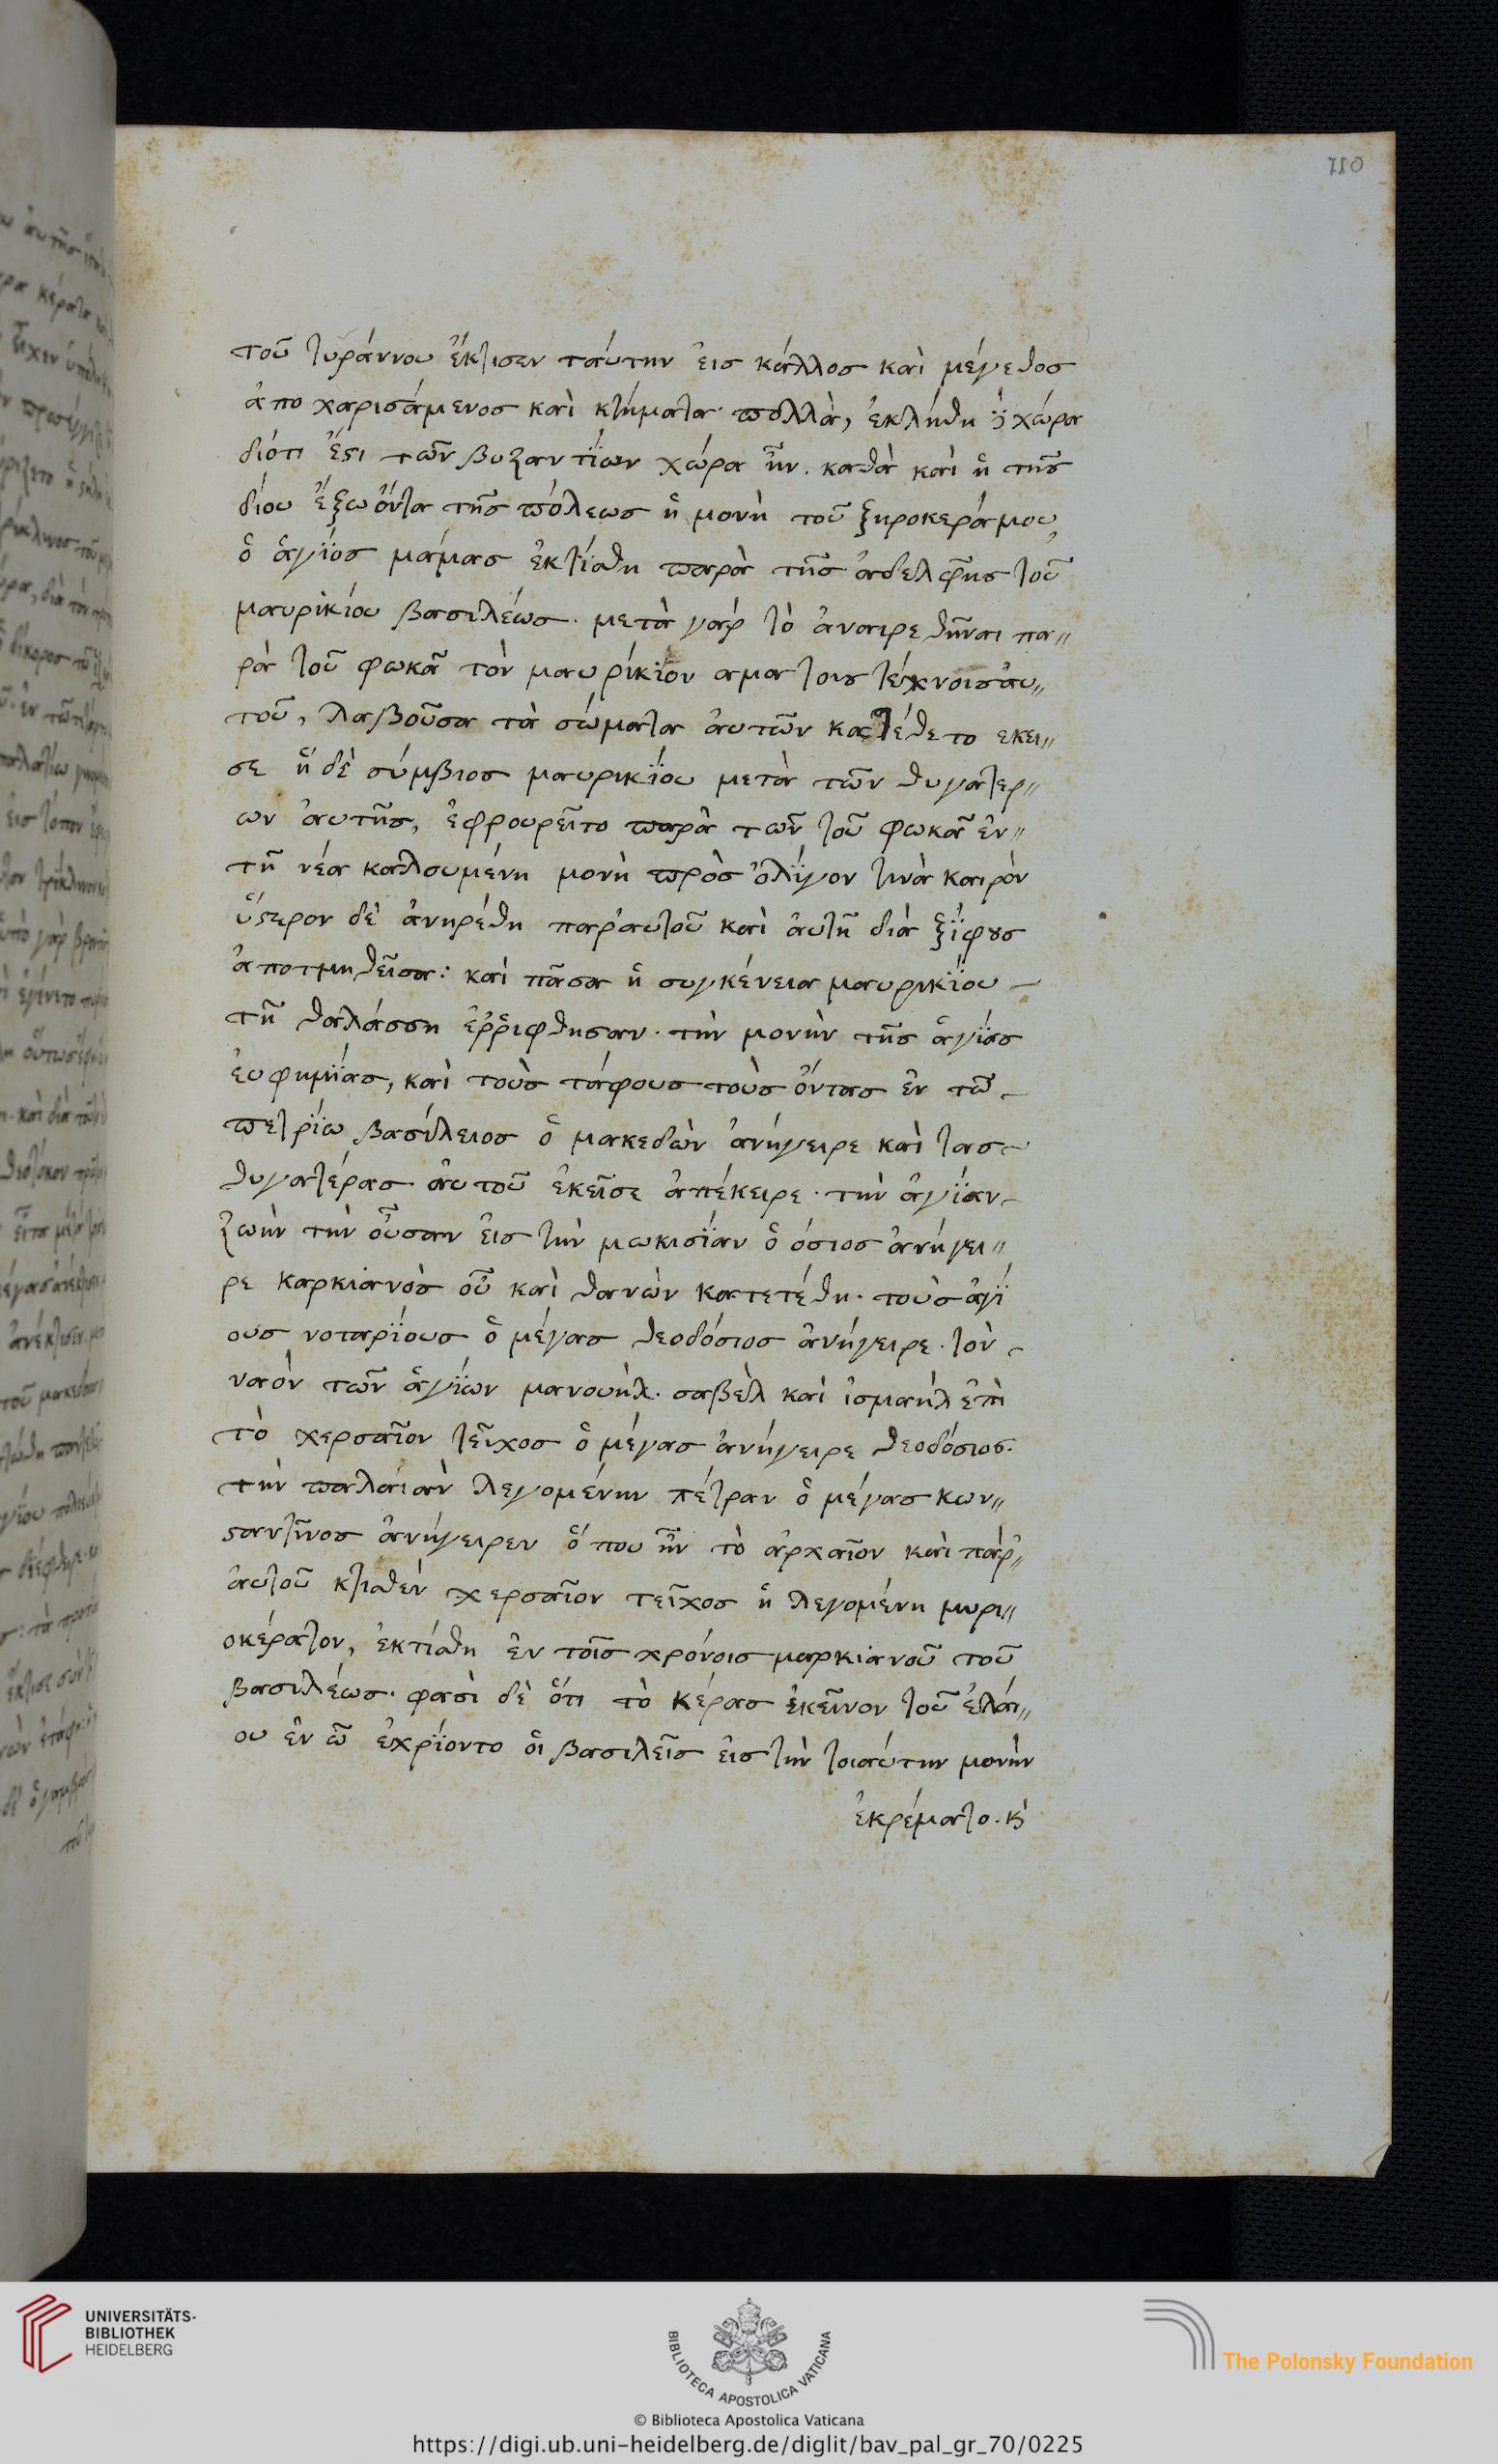 110
τοῦ τυράννου ἔκτισεν ταύτην ἐις κάλλος καὶ μέγεθος
ἀπο χαρισάμενος καὶ κτήματα πολλὰ, ἐκλήθη χώρα
διότι ἔστι τῶν βυζαντΐων χώρα ἦν. καθὰ καὶ ἡ τῆς
δίου ἔξω ὄντα τῆς πόλεως ἡ μονὴ τοῦ ξηροκεράμου,
ὁ ἅγϊος μάμας ἐκτίσθη παρὰ τῆς ἀδελφῆς τοῦ
μαυρϊκίου βασιλέως. μετὰ γὰρ τὸ ἀναιρεθῆναι πα„
ρὰ τοῦ φωκᾶ τὸν μαυρίκϊον αμα τοις τέκνοις ἀυ„
τοῦ, λαβοῦσα τὰ σώματα ἀυτῶν κατέθετο εκει„
σε ἡ δὲ σύμβιος μαυρικΐου μετὰ τῶν θυγατερ„
ων ἀυτῆς, ἐφρουρεῖτο παρὰ τῶν τοῦ φωκᾶ ἐν„
τῆ νέα καλουμένη μονὴ πρὸς ὀλΐγον τινὰ καιρὸν
ὕστερον δὲ ἀνηρέθη παρ'αυτοῦ καὶ ἀυτῆ διὰ ξΐφους
ἀποτμηθεῖσα: καὶ πᾶσα ἡ συγκένεια μαυρικΐου –
τῆ θαλάσση ἐῤῥιφθησαν. τὴν μονὴν τῆς ἁγΐας
ἐυφημΐας, καὶ τοὺς τάφους τοὺς ὄντας ἐν τῶ –
πετρΐω βασίλειος ὁ μακεδὼν ἀνήγειρε καὶ τας –
θυγατέρας ἀυτοῦ ἐκεῖσε ἀπέκειρε. τὴν ἁγΐαν –
ζωὴν τὴν οὖσαν ἐις τὴν μωκισΐαν ὁ όσιος ἀνήγει„
ρε καρκιανὸς οὗ καὶ θανὼν κατετέθη. τοὺς ἁγΐ
ους νοταρΐους ὁ μέγας θεοδόσιος ἀνήγειρε. τὸν –
ναὸν τῶν ἁγΐων μανουὴλ. σαβὲλ καὶ ἰσμαὴλ ἐπὶ
τὸ χερσαῖον τεῖχος ὁ μέγας ἀνήγειρε θεοδόσιος.
τὴν παλαιὰν λεγομένην πέτραν ὁ μέγας κων„
σταντῖνος ἀνήγειρεν ὅπου ἦν τὸ ἀρχαῖον καὶ παρ'„
ἀυτοῦ κτισθὲν χερσαῖον τεῖχος ἡ λεγομένη μυρι„
οκέρατον, ἐκτίσθη ἐν τοῖς χρόνοις μαρκιανοῦ τοῦ
βασιλέως. φασὶ δὲ ὅτι τὸ κέρας ἐκεῖνον τοῦ ἐλάι„
ου ἐν ὧ ἐχρΐοντο ὁι βασιλεῖς ἐις τὴν τοιαύτην μονὴν
ἐκρέματο. κὶ
UNIVERSITÄTS-
BIBLIOTHEK
HEIDELBERG
BIBLIOTECA APOSTOLICA VATICANA
The Polonsky Foundation
© Biblioteca Apostolica Vaticana
https://digi.ub.uni-heidelberg.de/diglit/bav_pal_gr_70/0225